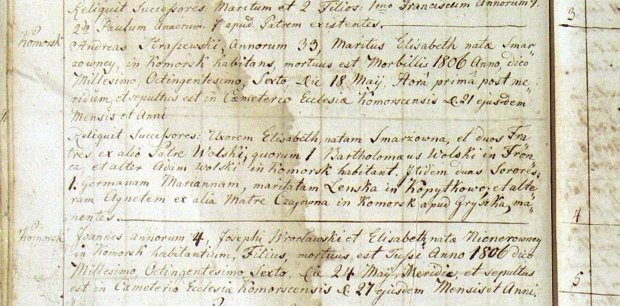 Reliquit Successores Maritum et 2 Filios. 1mo Franciscum Annorum 9.
2do Paulum Annorum 7 apud Patrem existentes.
3
Komorsk
Andreas Krajzewski, Annorum 33, Maritus Elisabeth natæ Smar„
zowney, in Komorsk habitans, mortuus est Morbillis 1806 Anno, dico
Millesimo, Octingentesimo, Sexto, Die 18 Maij, Horâ primâ post me„
ridiem, et sepultus est in Cæmeterio Ecclesiæ Komorscensis d. 21 ejusdem
Mensis et Anni
Reliquit Successores: Uxorem Elisabeth natam Smarzowna, et duos Fra„
tres ex alio Patre Wolski, quorum 1 Bartholomæus Wolski in Frön„
ca, et alter Adam Wolski in Komorsk habitant. Itidem duas Sorores,
1. germanam Mariannam, maritatam Lenska in Konytkowo, et alte„
ram Agnetem ex alia Matre in Komorsk apud Gryszka, ma„
nentes.
4
Komorsk
Joannes annorum 4, Josephi Wroclawski et Elisabeth natæ Nienerowney
in Komorsk habitantium, Filius, mortuus est Tussi Anno 1806 dico
Millesimo, Octingentesimo, Sexto, Die 24 Maij, Meridie, et sepultus
est in Cæmeterio Ecclesiæ Komorscensis d. 27 ejusdem Mensis et Anni,
5